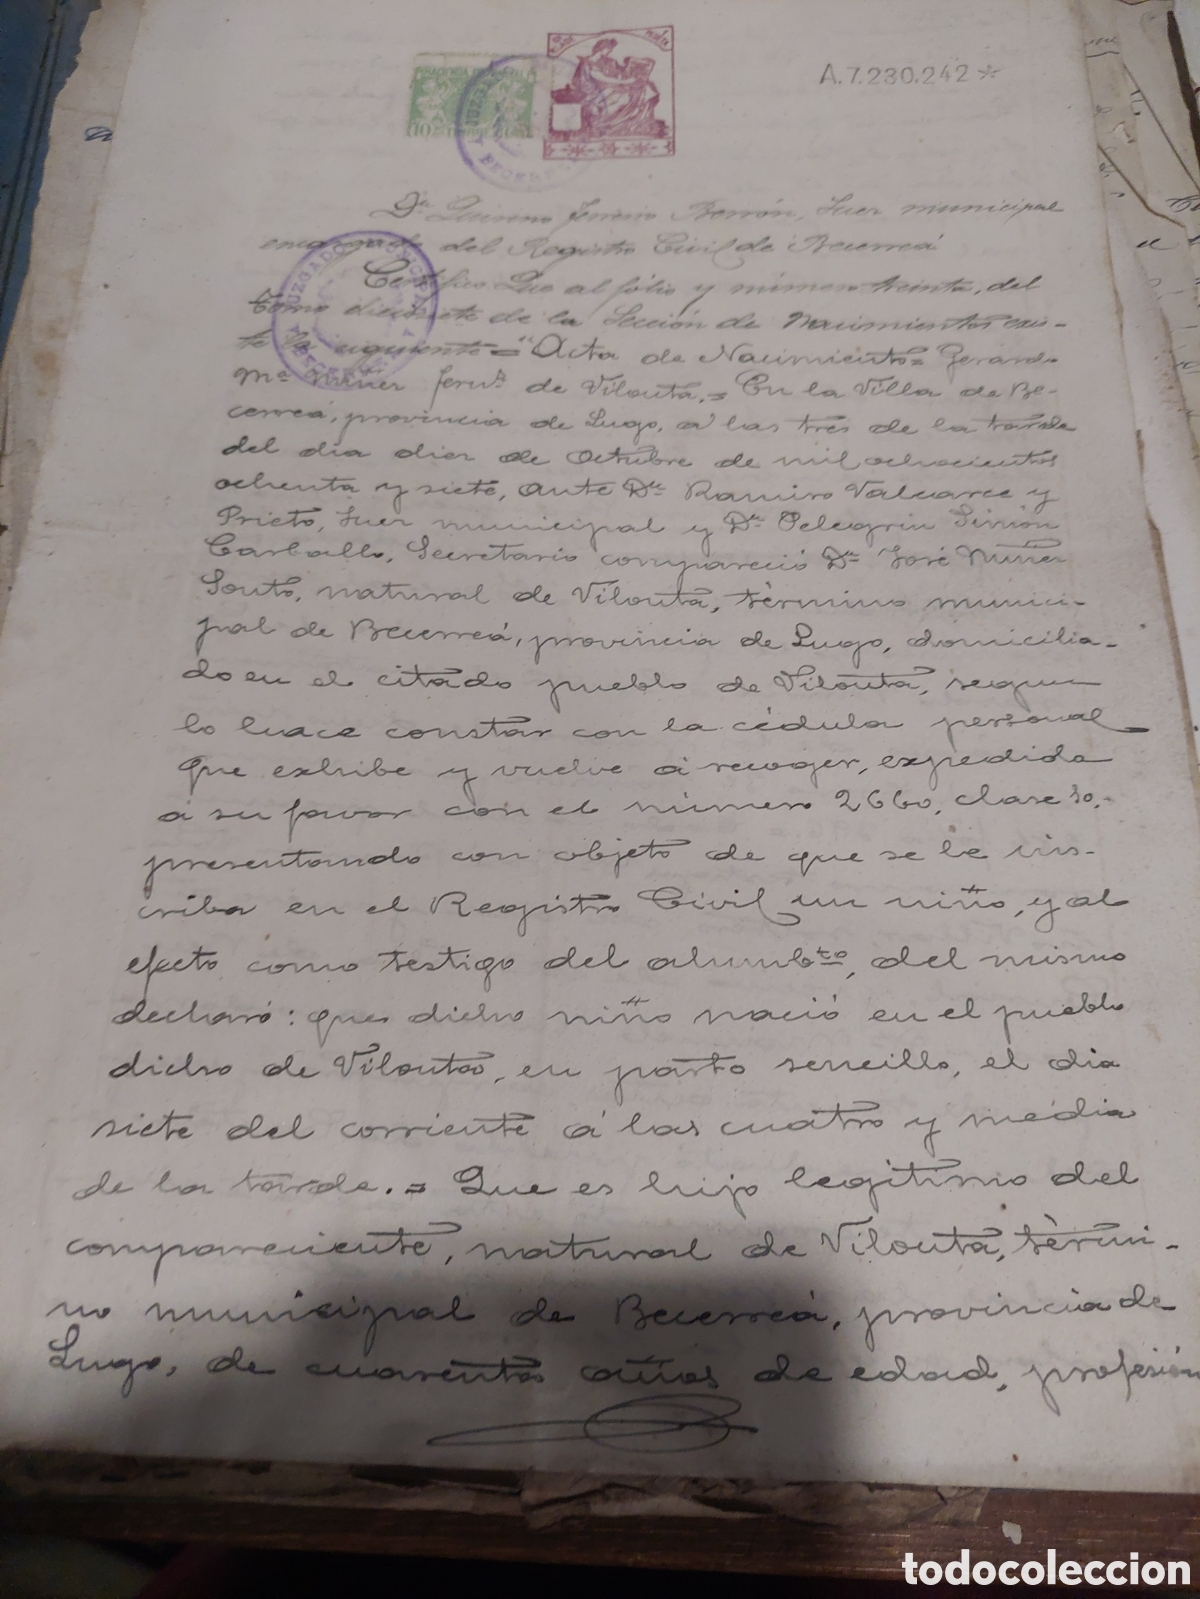 A.7.230.242*
Dn Jenaro Berrón, Juez municipal
encargado del Registro Civil de Becerreá
Certifico: Que al fólio y número treinta, del
tomo diecisiete de la Sección de Nacimientos exis-
te la siguiente = "Acta de Nacimiento = Gerardo
Mª Núñez Fernz de Vilouta. = En la Villa de Be-
cerreá, provincia de Lugo, á las tres de la tarde
del dia diez de Octubre de mil ochocientos
ochenta y siete, ante Dn Ramiro Valcarce y
Prieto, Juez municipal y Dn Pelegrin Simón
Carballo, Secretario compareció Dn José Núñez
Souto, natural de Vilouta, tèrmino munici-
pal de Becerreá, provincia de Lugo, domicilia-
do en el citado pueblo de Vilouta, segun
lo hace constar con la cédula personal
que exhibe y vuelve á recoger, expedida
á su favor con el número 2660, clase 10,
presentando con objeto de que se le ins-
criba en el Registro Civil un niño, y al
efecto como testigo del alumbto, del mismo
declaró: que dicho niño nació en el pueblo
dicho de Vilouta, en parto sencillo, el dia
siete del corriente á las cuatro y media
de la tarde. = Que es hijo legitimo del
compareciente, natural de Vilouta, tèrmi-
no municipal de Becerreá, provincia de
Lugo, de cuarenta años de edad, profesión
todocoleccion